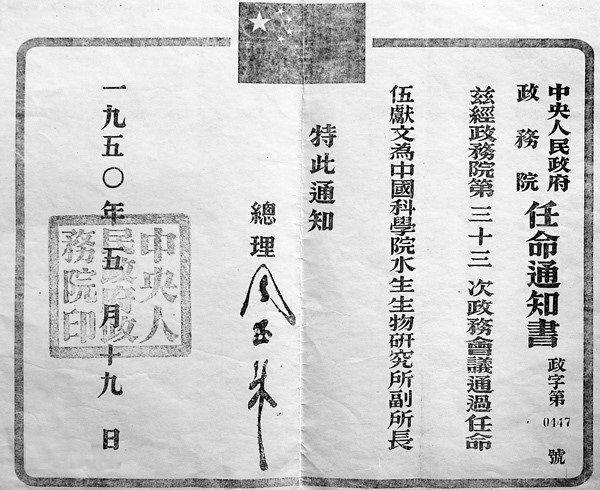 中央人民政府
政務院
任命通知書
政字第0447號
茲經政務院第三十三次政務會議通過任命
伍獻文為中國科學院水生生物研究所副所長
特此通知
總理
周恩來
一九五〇年五月十九日
中央人民政府政務院印